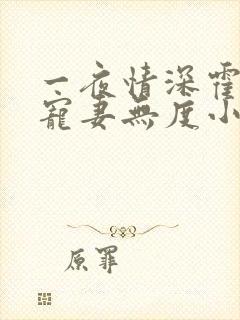 一夜情深霍
宠妻无度小
原罪